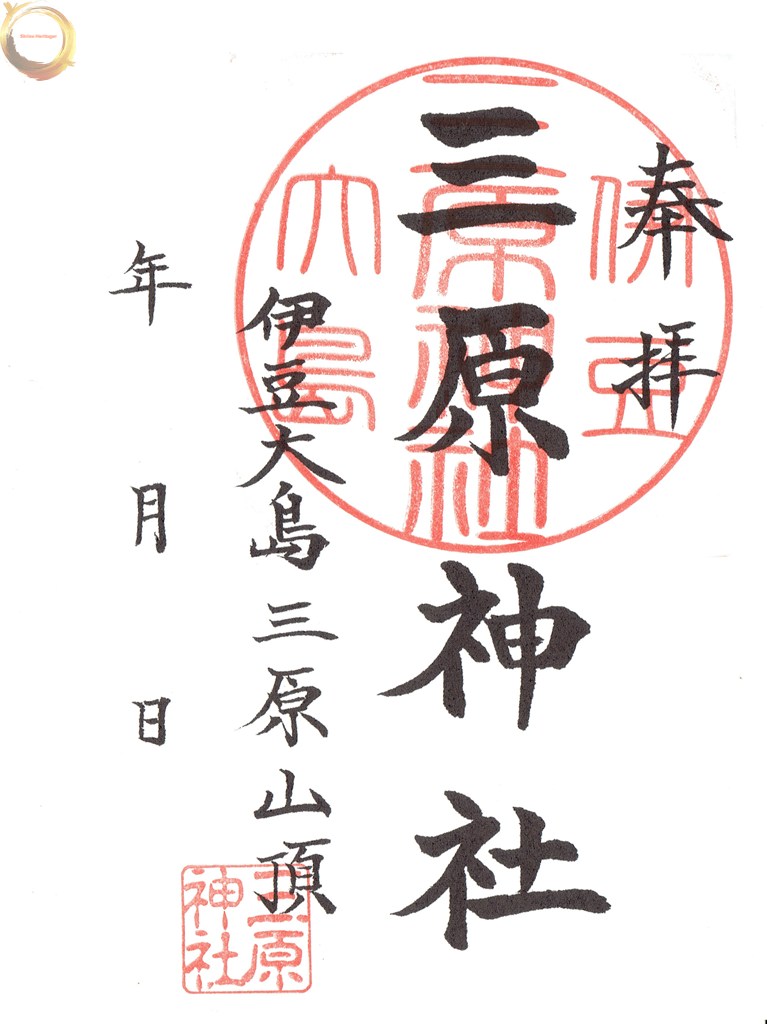 奉拝
三原神社
伊豆大島三原山頂
年 月 日
伊豆
三原神社
大島
三原
神社